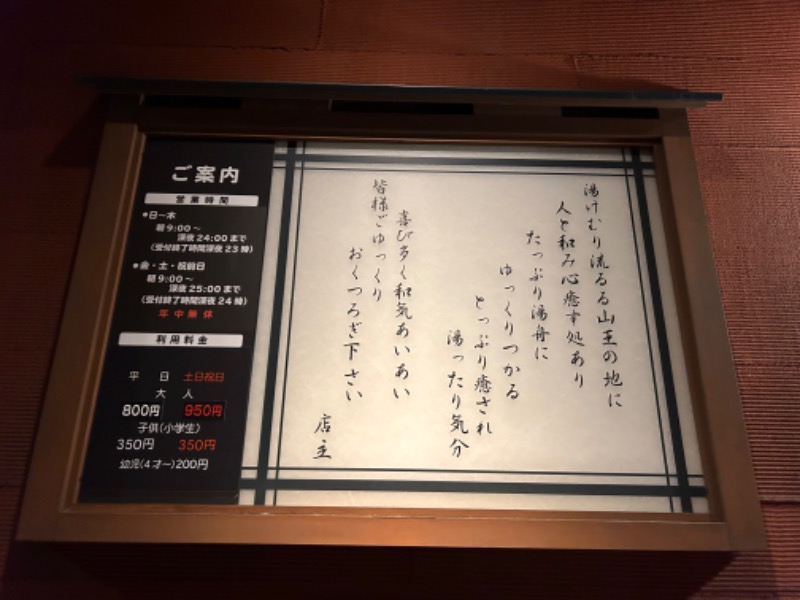 ご案内
営業時間
●日~木
朝9:00~
深夜24:00まで
(受付終了時間深夜23時)
●金・土・祝前日
朝9:00~
深夜25:00まで
(受付終了時間深夜24時)
年中無休
利用料金
平 日 土日祝日
大 人
800円 950円
子供(小学生)
350円 350円
幼児(4才~)200円
湯けむり流るる山王の地に
人と和み心癒す処あり
たっぷり湯舟に
ゆっくりつかる
とっぷり癒され
湯ったり気分
喜び多く和気あいあい
皆様ごゆっくり
おくつろぎ下さい
店主